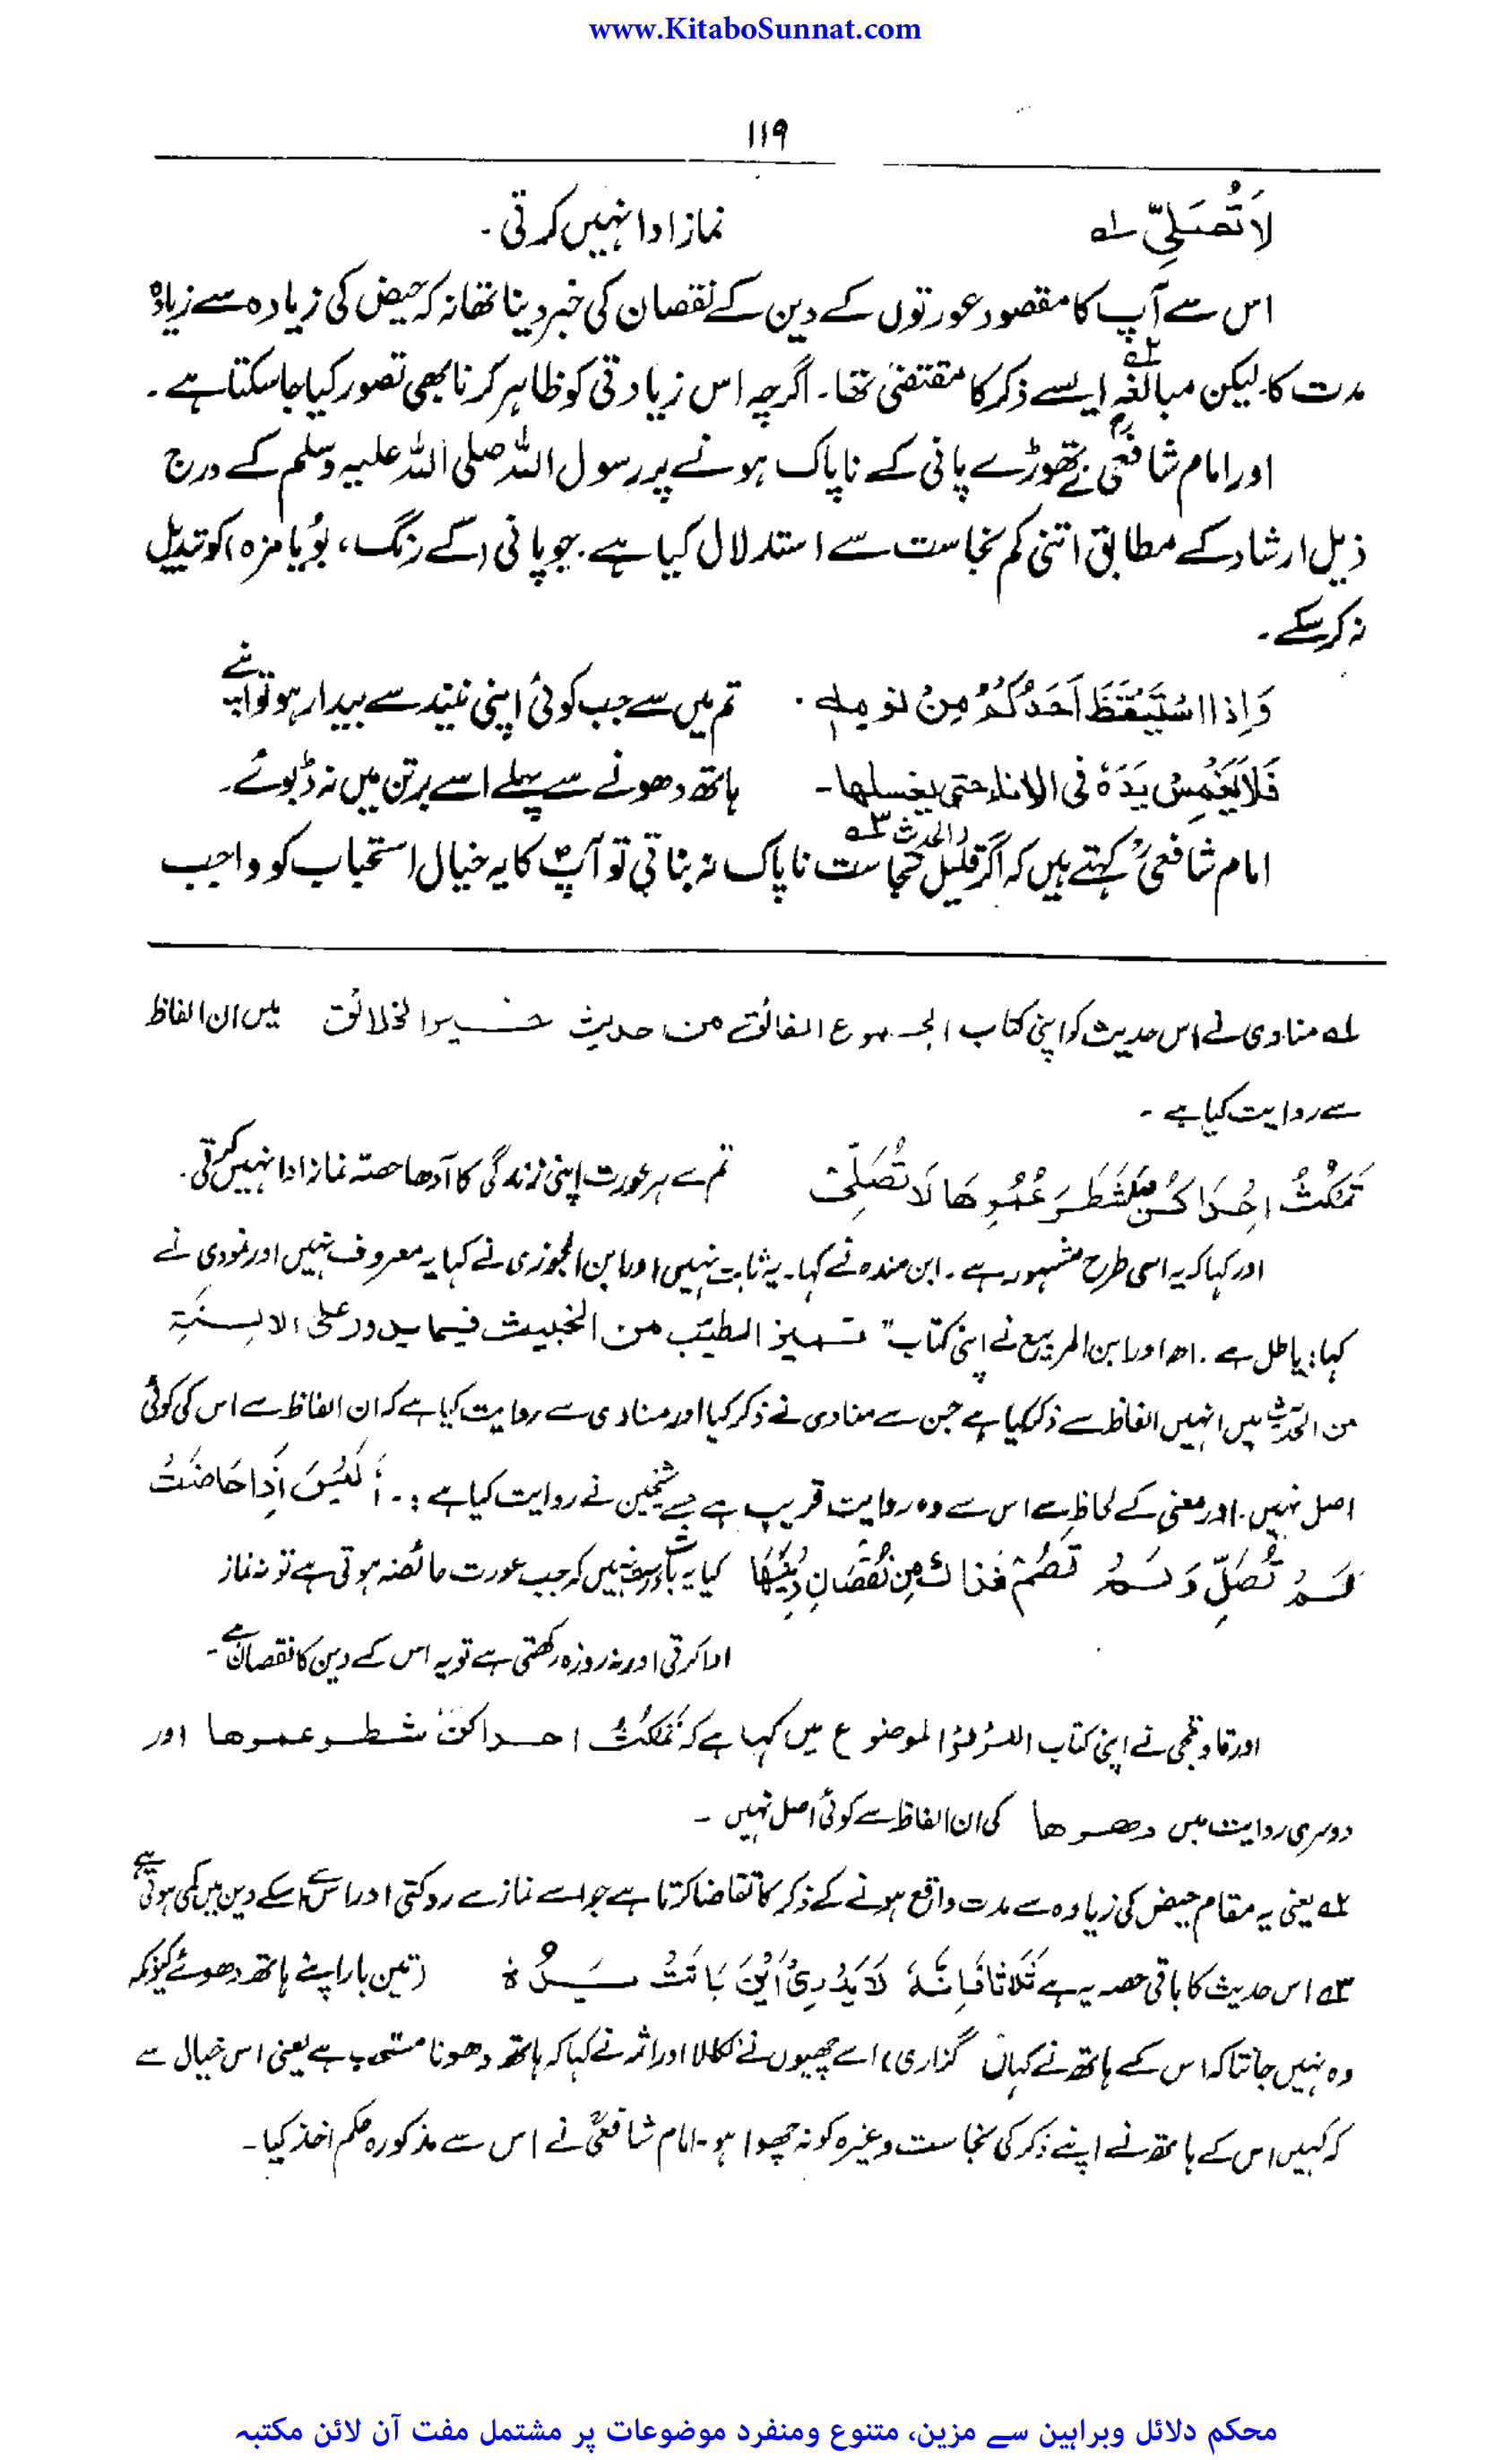 www.KitaboSunnat.com
۱۱۹
لَا تُصَلِّیْ ۱ نماز ادا نہیں کرتی ۔
اس سے آپ کا مقصود عورتوں کے دین کے نقصان کی خبر دینا تھا نہ کہ حیض کی زیادہ سے زیادہ
مدت کا۔ لیکن مبالغہ ۲ ایسے ذکر کا مقتضی تھا۔ اگرچہ اس زیادتی کو ظاہر کرنا بھی تصور کیا جاسکتا ہے ۔
اور امام شافعیؒ نے تھوڑے پانی کے ناپاک ہونے پر رسول اللہ صلی اللہ علیہ وسلم کے درج
ذیل ارشاد کے مطابق اتنی کم نجاست سے استدلال کیا ہے۔ جو پانی (کے رنگ، بُو یا مزہ) کو تبدیل
نہ کر سکے ۔
وَاِذا اسْتَيْقَظَ اَحَدُكُمْ مِنْ نومه . تم میں سے جب کوئی اپنی نیند سے بیدار ہو تو اپنے
فَلَا يَغْمِسْ يَدَهٗ فی الاناء حتی یغسلها۔ ہاتھ دھونے سے پہلے اسے برتن میں نہ ڈبوئے۔
(الحدیث ۳
امام شافعیؒ کہتے ہیں کہ اگر قلیل نجاست ناپاک نہ بناتی تو آپؐ کا یہ خیال استحباب کو واجب
۱ مناوی نے اس حدیث کو اپنی کتاب المجموع الفائق من حدیث خیر الخلائق میں ان الفاظ
سے روایت کیا ہے ۔
تَمْكُثُ اِحْدَاكُنَّ شَطْرَ عُمُرِهَا لَا تُصَلِّیْ تم سے ہر عورت اپنی زندگی کا آدھا حصتہ نماز ادا نہیں کرتی۔
اور کہا کہ یہ اسی طرح مشہور ہے ۔ ابن مندہ نے کہا۔ یہ ثابت نہیں اور ابن الجوزی نے کہا یہ معروف نہیں اور نووی نے
کہا: باطل ہے ۔ اھ اور ابن الربیع نے اپنی کتاب "تمییز الطیّب من الخبیث فیما یدور علی الالسنۃ
من الحدیث میں انہیں الفاظ سے ذکر کیا ہے جن سے مناوی نے ذکر کیا اور مناوی سے روایت کیا ہے کہ ان الفاظ سے اس کی کوئی
اصل نہیں۔ اور معنی کے لحاظ سے اس سے وہ روایت قریب ہے جسے شیخین نے روایت کیا ہے :۔ أَلَيْسَ اِذَا حَاضَتْ
لَمْ تُصَلِّ وَلَمْ تَصُمْ فَذَاكَ مِنْ نُقْصَانِ دِيْنِهَا کیا یہ بات درست نہیں کہ جب عورت حائضہ ہوتی ہے تو نہ نماز
ادا کرتی اور نہ روزہ رکھتی ہے تو یہ اس کے دین کا نقصان ہے ۔
اور قاوقجی نے اپنی کتاب اللؤلؤ الموضوع میں کہا ہے کہ تَمْكُثُ احداکن شطر عمرها اور
دوسری روایت میں دھرھا کی ان الفاظ سے کوئی اصل نہیں ۔
۲ یعنی یہ مقام حیض کی زیادہ سے مدت واقع ہونے کے ذکر کا تقاضا کرتا ہے جو اسے نماز سے روکتی اور اس سے اسکے دین میں کمی ہوتی ہے
۳ اس حدیث کا باقی حصہ یہ ہے ثَلَاثًا فَاِنَّهٗ لَا يَدْرِیْ اَيْنَ بَاتَتْ يَدُهٗ (تین بار اپنے ہاتھ دھوئے کیونکہ
وہ نہیں جانتا کہ اس کے ہاتھ نے کہاں گزاری) اسے چھیوں نے نکالا اور ائمہ نے کہا کہ ہاتھ دھونا مستحب ہے یعنی اس خیال سے
کہ کہیں اس کے ہاتھ نے اپنے ذکر کی نجاست وغیرہ کو نہ چھوا ہو۔ امام شافعیؒ نے اس سے مذکورہ حکم اخذ کیا۔
محکم دلائل وبراہین سے مزین، متنوع ومنفرد موضوعات پر مشتمل مفت آن لائن مکتبہ